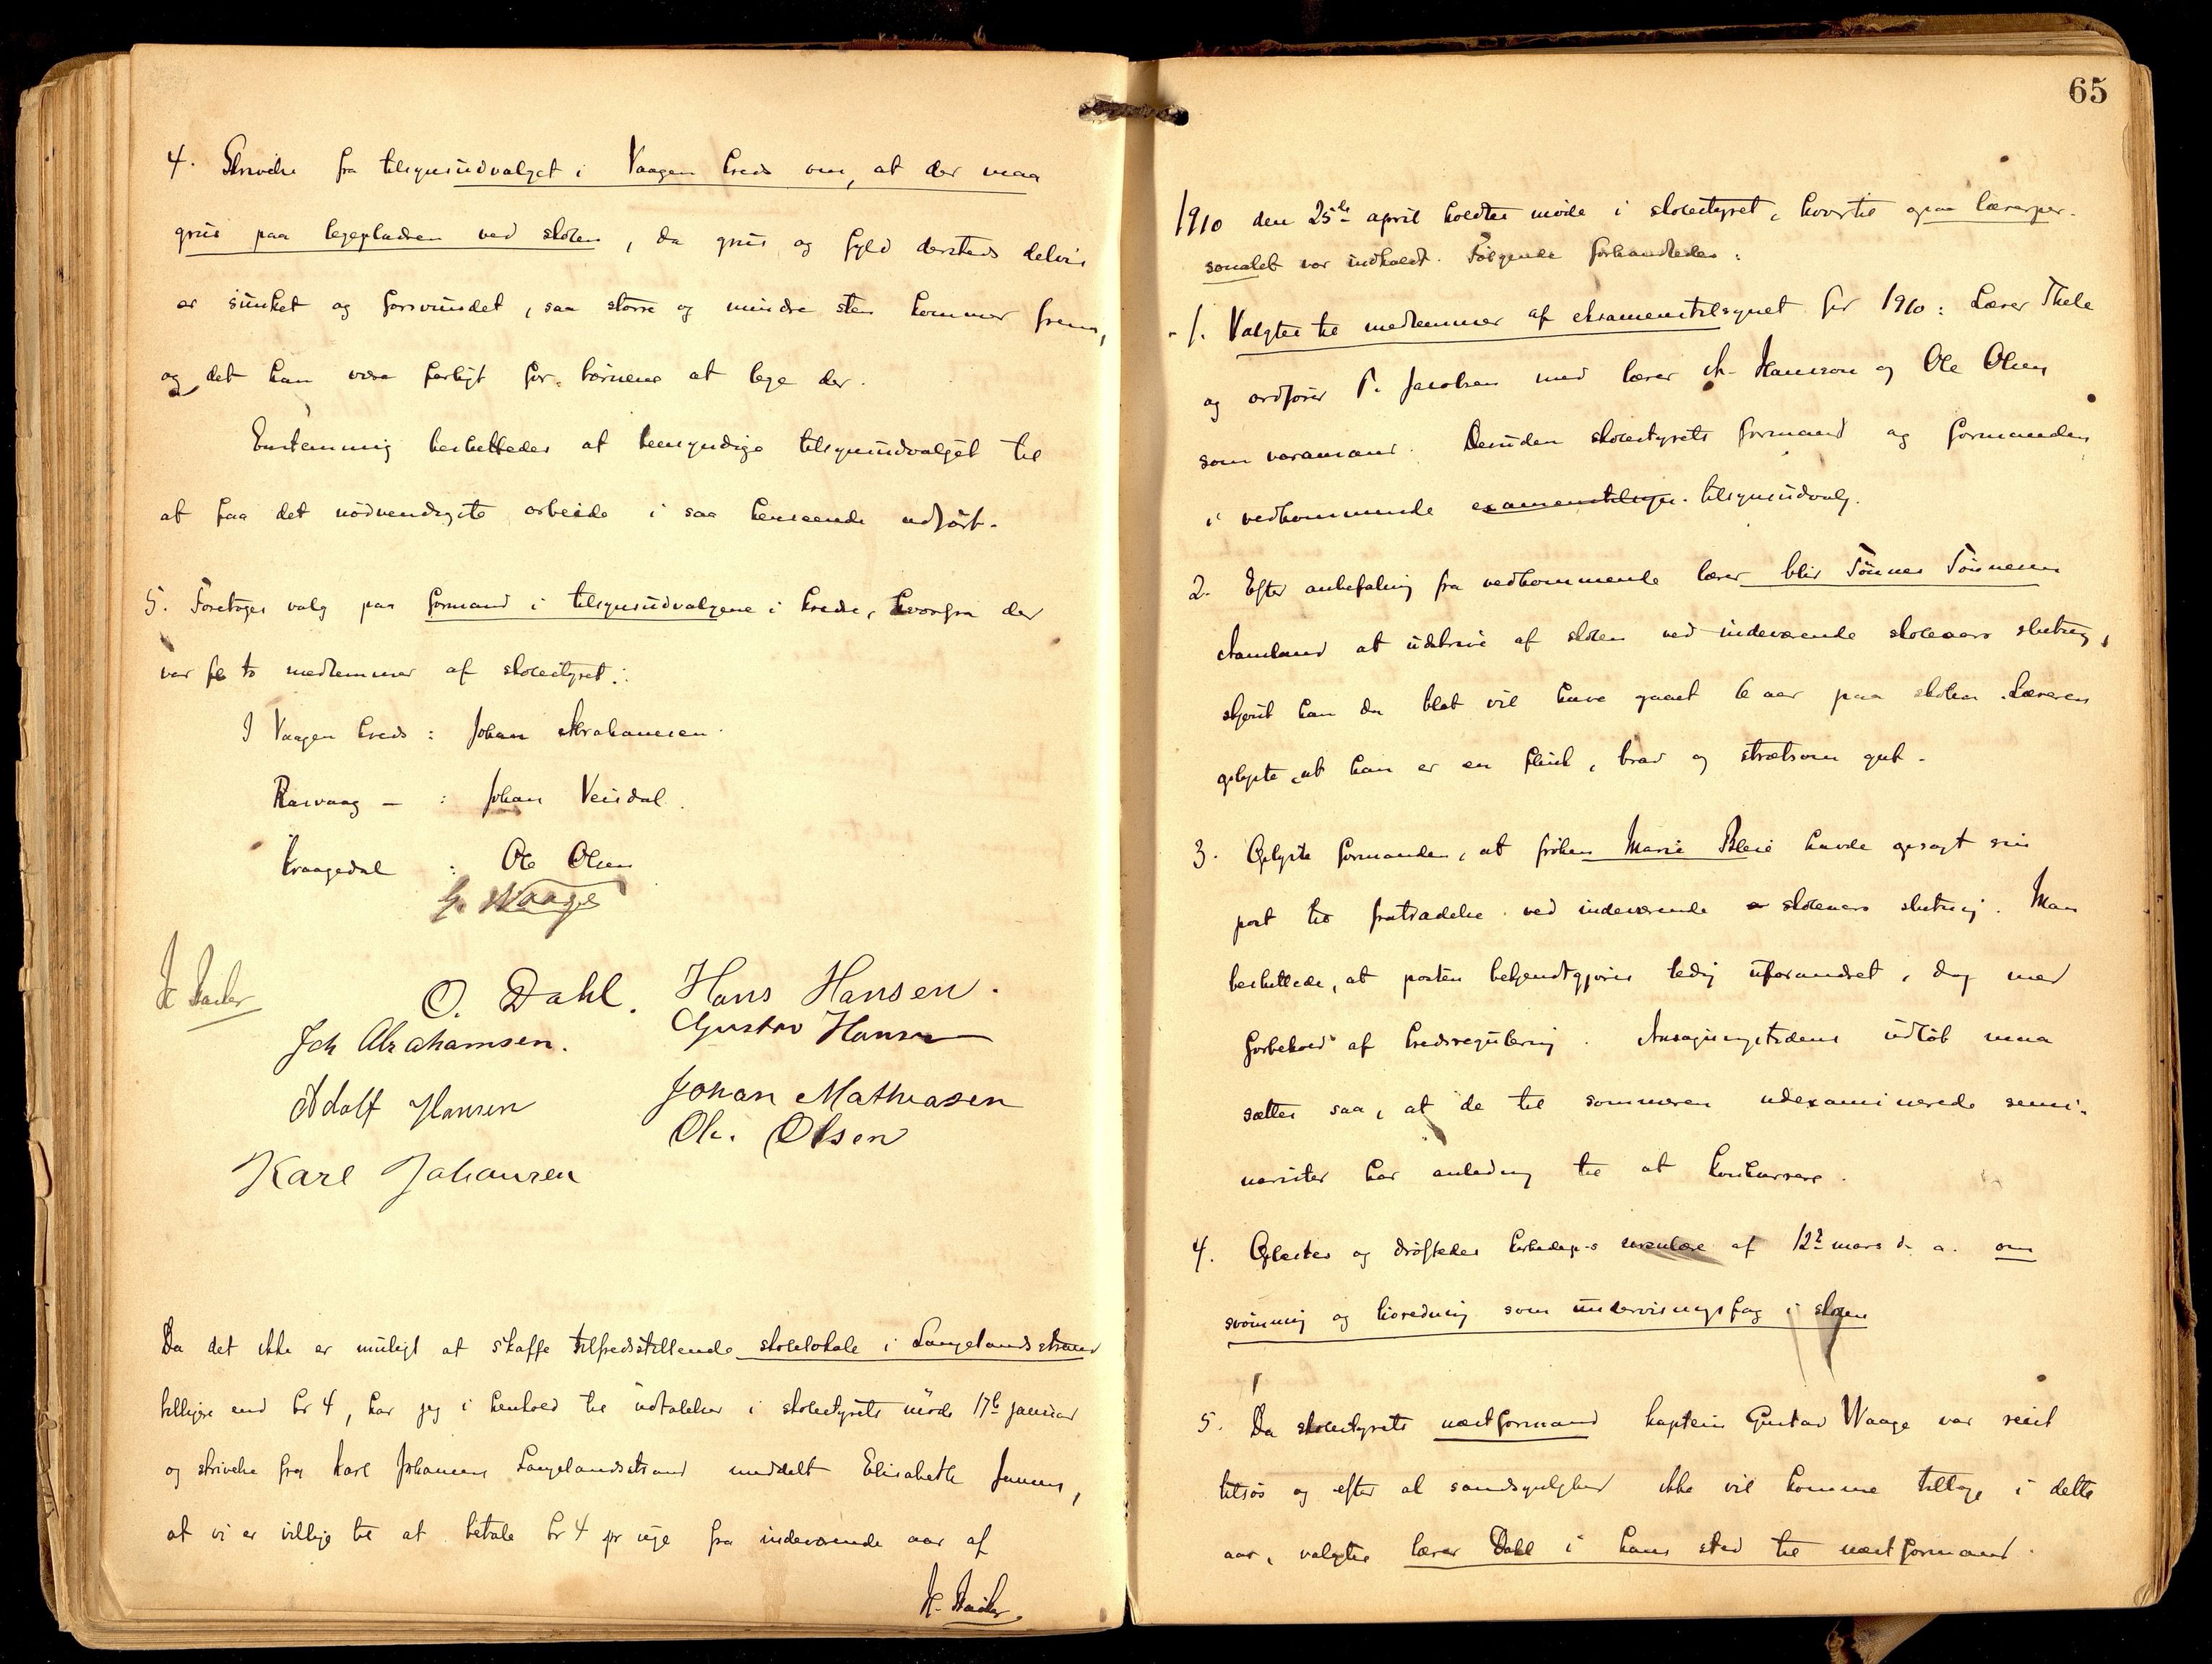 4. Skrivelse fra tilsynsudvalget i Vaagen kreds om, at der maa
grus paa legepladsen ved skolen, da grus og fyld dersteds delvis
er sunket og forsvundet, saa större og mindre sten kommer frem,
og det kan være farligt for börnene at lege der.
Enstemmig besluttedes at bemyndige tilsynsudvalget til
at faa det nödvendigste arbeide i saa henseende udfört.
5. Foretoges valg paa formand i tilsynsudvalgene i kredse, hvorfra der
var to medlemmer af skolestyret:
I Vaagen kreds: Johan Abrahamsen.
Rasvaag — : Johan Veisdal.
Kraagedal : Ole Olsen
G. Waage
O. Dahl. Hans Hansen.
Joh Abrahamsen. Gustav Hansen
Adolf Hansen Johan Mathiasen
Ole. Olsen
Karl Johansen
Da det ikke er muligt at skaffe tilfredsstillende skolelokale i Langelandsstrand
billigere end kr 4, har jeg i henhold til udtalelser i skolestyrets möde 17de januar
og skrivelse fra Karl Johansen Langelandsstrand meddelt Elisabeth Jensen,
at vi er villige til at betale kr 4 pr uge fra indeværende aar af
65
1910 den 25de april holdtes möde i skolestyret, hvortil ogsaa lærerper-
sonalet var indkaldt. Fölgende forhandledes:
1. Valgtes til medlemmer af eksamenstilsynet for 1910: Lærer Thele
og ordförer P. Jacobsen med lærer A. Hansson og Ole Olsen
som varamænd. Desuden skolestyrets formand og formanden
i vedkommende examenstilsyn. tilsynsudvalg.
2. Efter anbefaling fra vedkommende lærer blir Tönnes Tönnesen
Aamland at udskrive af skolen ved indeværende skoleaars slutning,
skjönt han da blot vil have gaaet 6 aar paa skolen. Læreren
oplyste, at han er en flink, brav og strætsom gut.
3. Oplyste formanden, at fröken Marie Bleie havde opsagt sin
post til fratrædelse ved indeværende skoleaars slutning. Man
besluttede, at posten bekjendtgjöres ledig uforandret, dog med
forbehold af kredsregulering. Ansögningstidens udlöb maa
sættes saa, at de til sommeren udexaminerede semi-
narister har anledning til at konkurrere.
4. Oplæstes og dröftedes kirkedep-s cirkulære af 12te mars d. a. om
svömning og livredning som undervisningsfag i skolen
5. Da skolestyrets næstformand kaptein Gustav Waage var reist
tilsös og efter al sandsynlighed ikke vil komme tilbage i dette
aar, valgtes lærer Dahl i hans sted til næstformand.